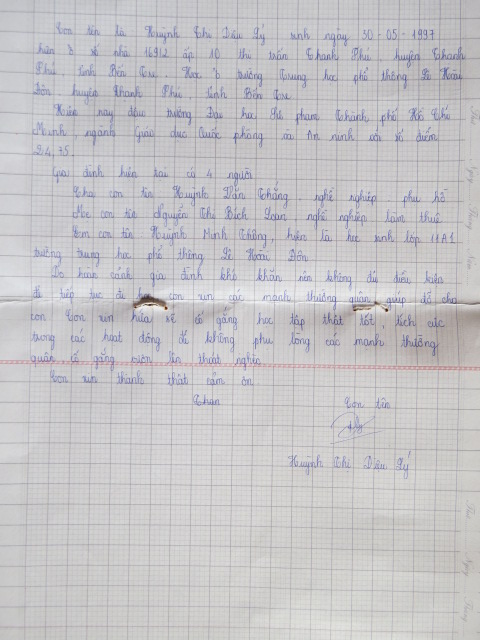 Con tên là Huỳnh Thị Trúc Lý sinh ngày 30-05-1997
hiện ở số nhà 169/2 ấp 10 thị trấn Thạnh Phú, huyện Thạnh
Phú, tỉnh Bến Tre. Học ở trường Trung học phổ thông Lê Hoài
Đôn, huyện Thạnh Phú, tỉnh Bến Tre.
Hiện nay đậu trường Đại học Sư phạm Thành phố Hồ Chí
Minh, ngành Giáo dục Quốc phòng và An ninh với số điểm
24,75.
Gia đình hiện tại có 4 người
Cha con tên Huỳnh Văn Thắng, nghề nghiệp: phụ hồ
Mẹ con tên Nguyễn Thị Bích Loan, nghề nghiệp làm thuê
Em con tên Huỳnh Minh Thông, hiện là học sinh lớp 11A1
trường trung học phổ thông Lê Hoài Đôn.
Do hoàn cảnh gia đình khó khăn nên không đủ điều kiện
để tiếp tục đi học con xin các mạnh thường quân giúp đỡ cho
con. Con xin hứa sẽ cố gắng học tập thật tốt, tích cực
trong các hoạt động để không phụ lòng các mạnh thường
quân, cố gắng vươn lên thoát nghèo.
Con xin thành thật cảm ơn
Chào
Con tên
Huỳnh Thị Trúc Lý